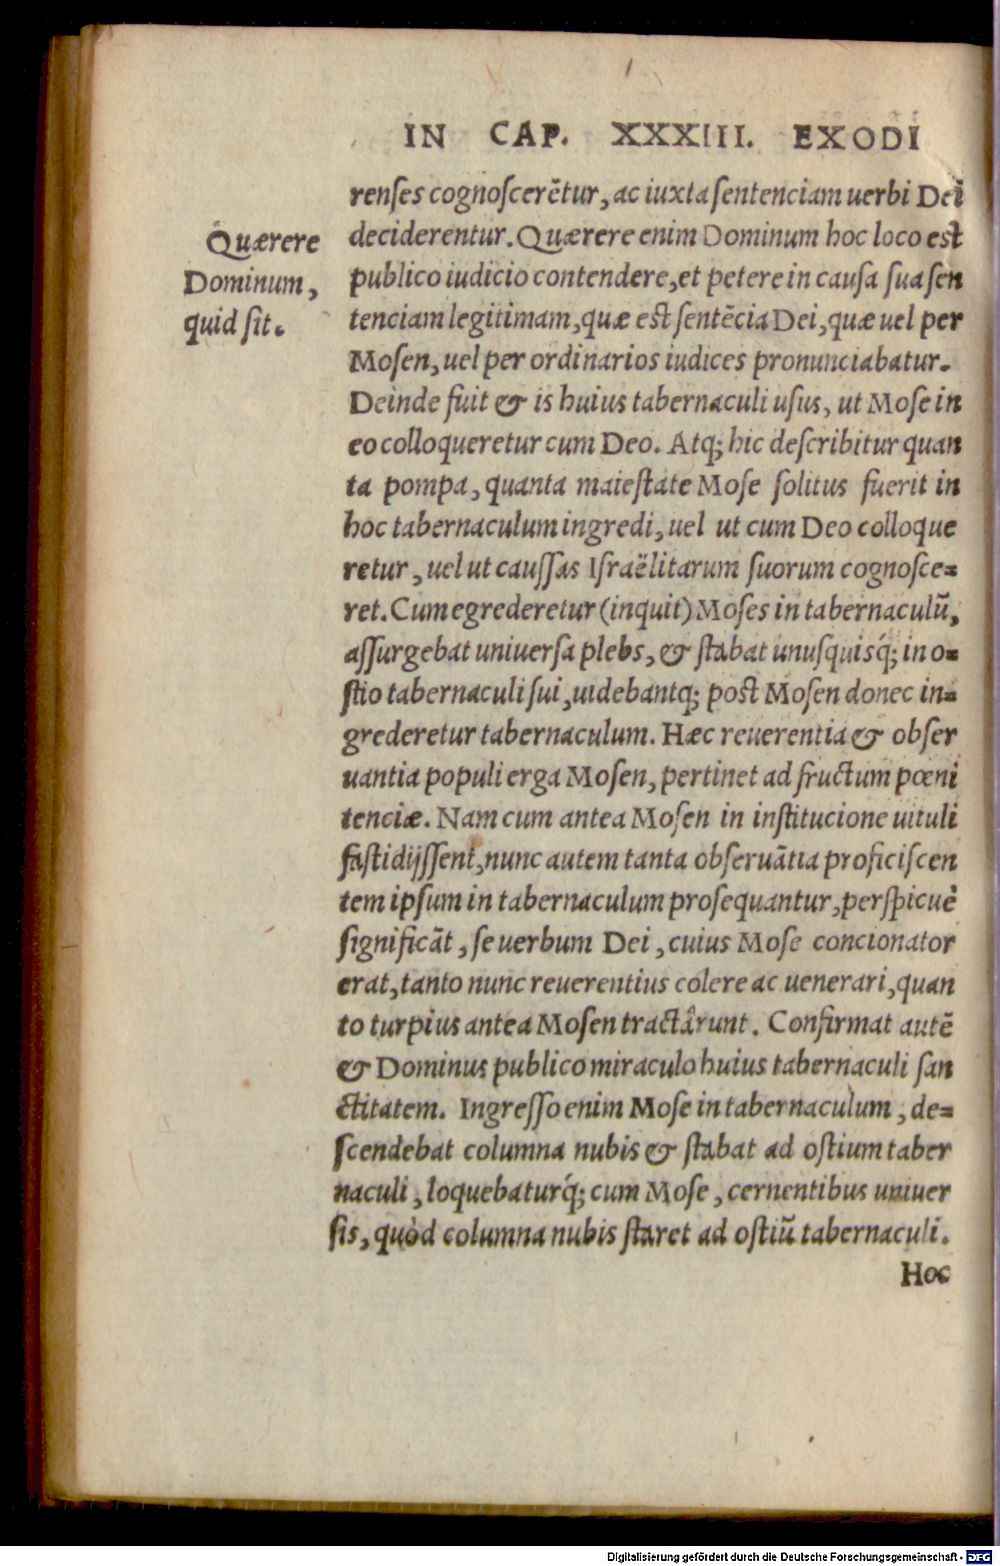 IN CAP. XXXIII. EXODI
renſes cognoſcerētur, ac iuxta ſentenciam uerbi Dei
deciderentur. Quærere enim Dominum hoc loco est
publico iudicio contendere, et petere in cauſa ſua ſen
tenciam legitimam, quæ est ſentēcia Dei, quæ uel per
Moſen, uel per ordinarios iudices pronunciabatur.
Quærere
Dominum,
quid ſit.
Deinde fuit & is huius tabernaculi uſus, ut Moſe in
eo colloqueretur cum Deo. Atq; hic deſcribitur quan
ta pompa, quanta maieſtate Moſe ſolitus fuerit in
hoc tabernaculum ingredi, uel ut cum Deo colloque
retur, uel ut cauſſas Iſraëlitarum ſuorum cognoſce=
ret. Cum egrederetur (inquit) Moſes in tabernaculū,
aſſurgebat uniuerſa plebs, & ſtabat unuſquisq́; in o=
ſtio tabernaculi ſui, uidebantq; post Moſen donec in=
grederetur tabernaculum. Hæc reuerentia & obſer
uantia populi erga Moſen, pertinet ad fructum pœni
tenciæ. Nam cum antea Moſen in inſtitucione uituli
faſtidijſſent, nunc autem tanta obſeruātia proficiſcen
tem ipſum in tabernaculum proſequantur, perſpicuè
ſignificāt, ſe uerbum Dei, cuius Moſe concionator
erat, tanto nunc reuerentius colere ac uenerari, quan
to turpius antea Moſen tractârunt. Confirmat autē
& Dominus publico miraculo huius tabernaculi ſan
ctitatem. Ingreſſo enim Moſe in tabernaculum, de=
ſcendebat columna nubis & ſtabat ad oſtium taber
naculi, loquebaturq́; cum Moſe, cernentibus uniuer
ſis, quòd columna nubis ſtaret ad oſtiū tabernaculi.
Hoc
Digitalisierung gefördert durch die Deutsche Forschungsgemeinschaft - DFG